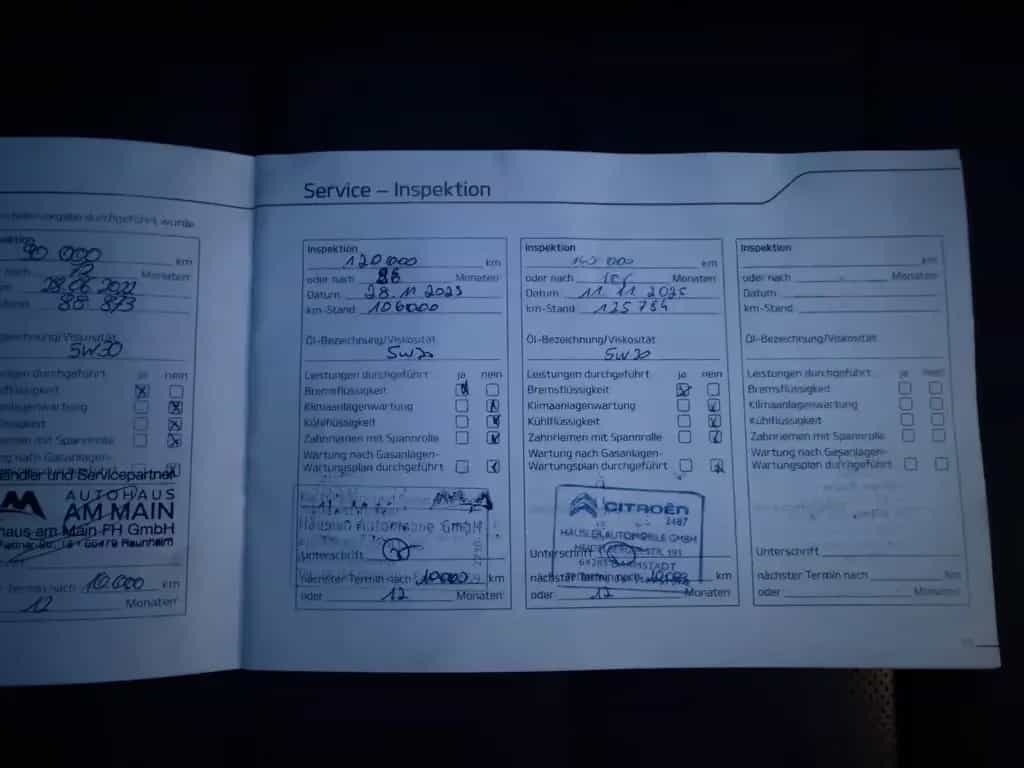 Service – Inspektion
durchgeführt wurde
90 000 km
nach 12 Monaten
28.06.2022
88 873
5W30
ja nein
Händler und Servicepartner
AUTOHAUS
AM MAIN
Main FH GmbH
Raunheim
10.000 km
12 Monaten
Inspektion
120000 km
oder nach Monaten
Datum 28.11.2023
km-Stand 106000
Öl-Bezeichnung/Viskosität
5W30
Leistungen durchgeführt ja nein
Bremsflüssigkeit
Klimaanlagenwartung
Kühlflüssigkeit
Zahnriemen mit Spannrolle
Wartung nach Gasanlagen-
Wartungsplan durchgeführt
Häusler Automobile GmbH
Unterschrift
nächster Termin nach 10000 km
oder 12 Monaten
Inspektion
000 km
oder nach Monaten
Datum 11.11.2025
km-Stand 125 754
Öl-Bezeichnung/Viskosität
5W30
Leistungen durchgeführt ja nein
Bremsflüssigkeit
Klimaanlagenwartung
Kühlflüssigkeit
Zahnriemen mit Spannrolle
Wartung nach Gasanlagen-
Wartungsplan durchgeführt
CITROËN
2487
HÄUSLER AUTOMOBILE GMBH
STR. 191
DARMSTADT
Unterschrift
nächster Termin nach 10000 km
oder 12 Monaten
Inspektion
km
oder nach Monaten
Datum
km-Stand
Öl-Bezeichnung/Viskosität
Leistungen durchgeführt ja nein
Bremsflüssigkeit
Klimaanlagenwartung
Kühlflüssigkeit
Zahnriemen mit Spannrolle
Wartung nach Gasanlagen-
Wartungsplan durchgeführt
Unterschrift
nächster Termin nach km
oder Monaten